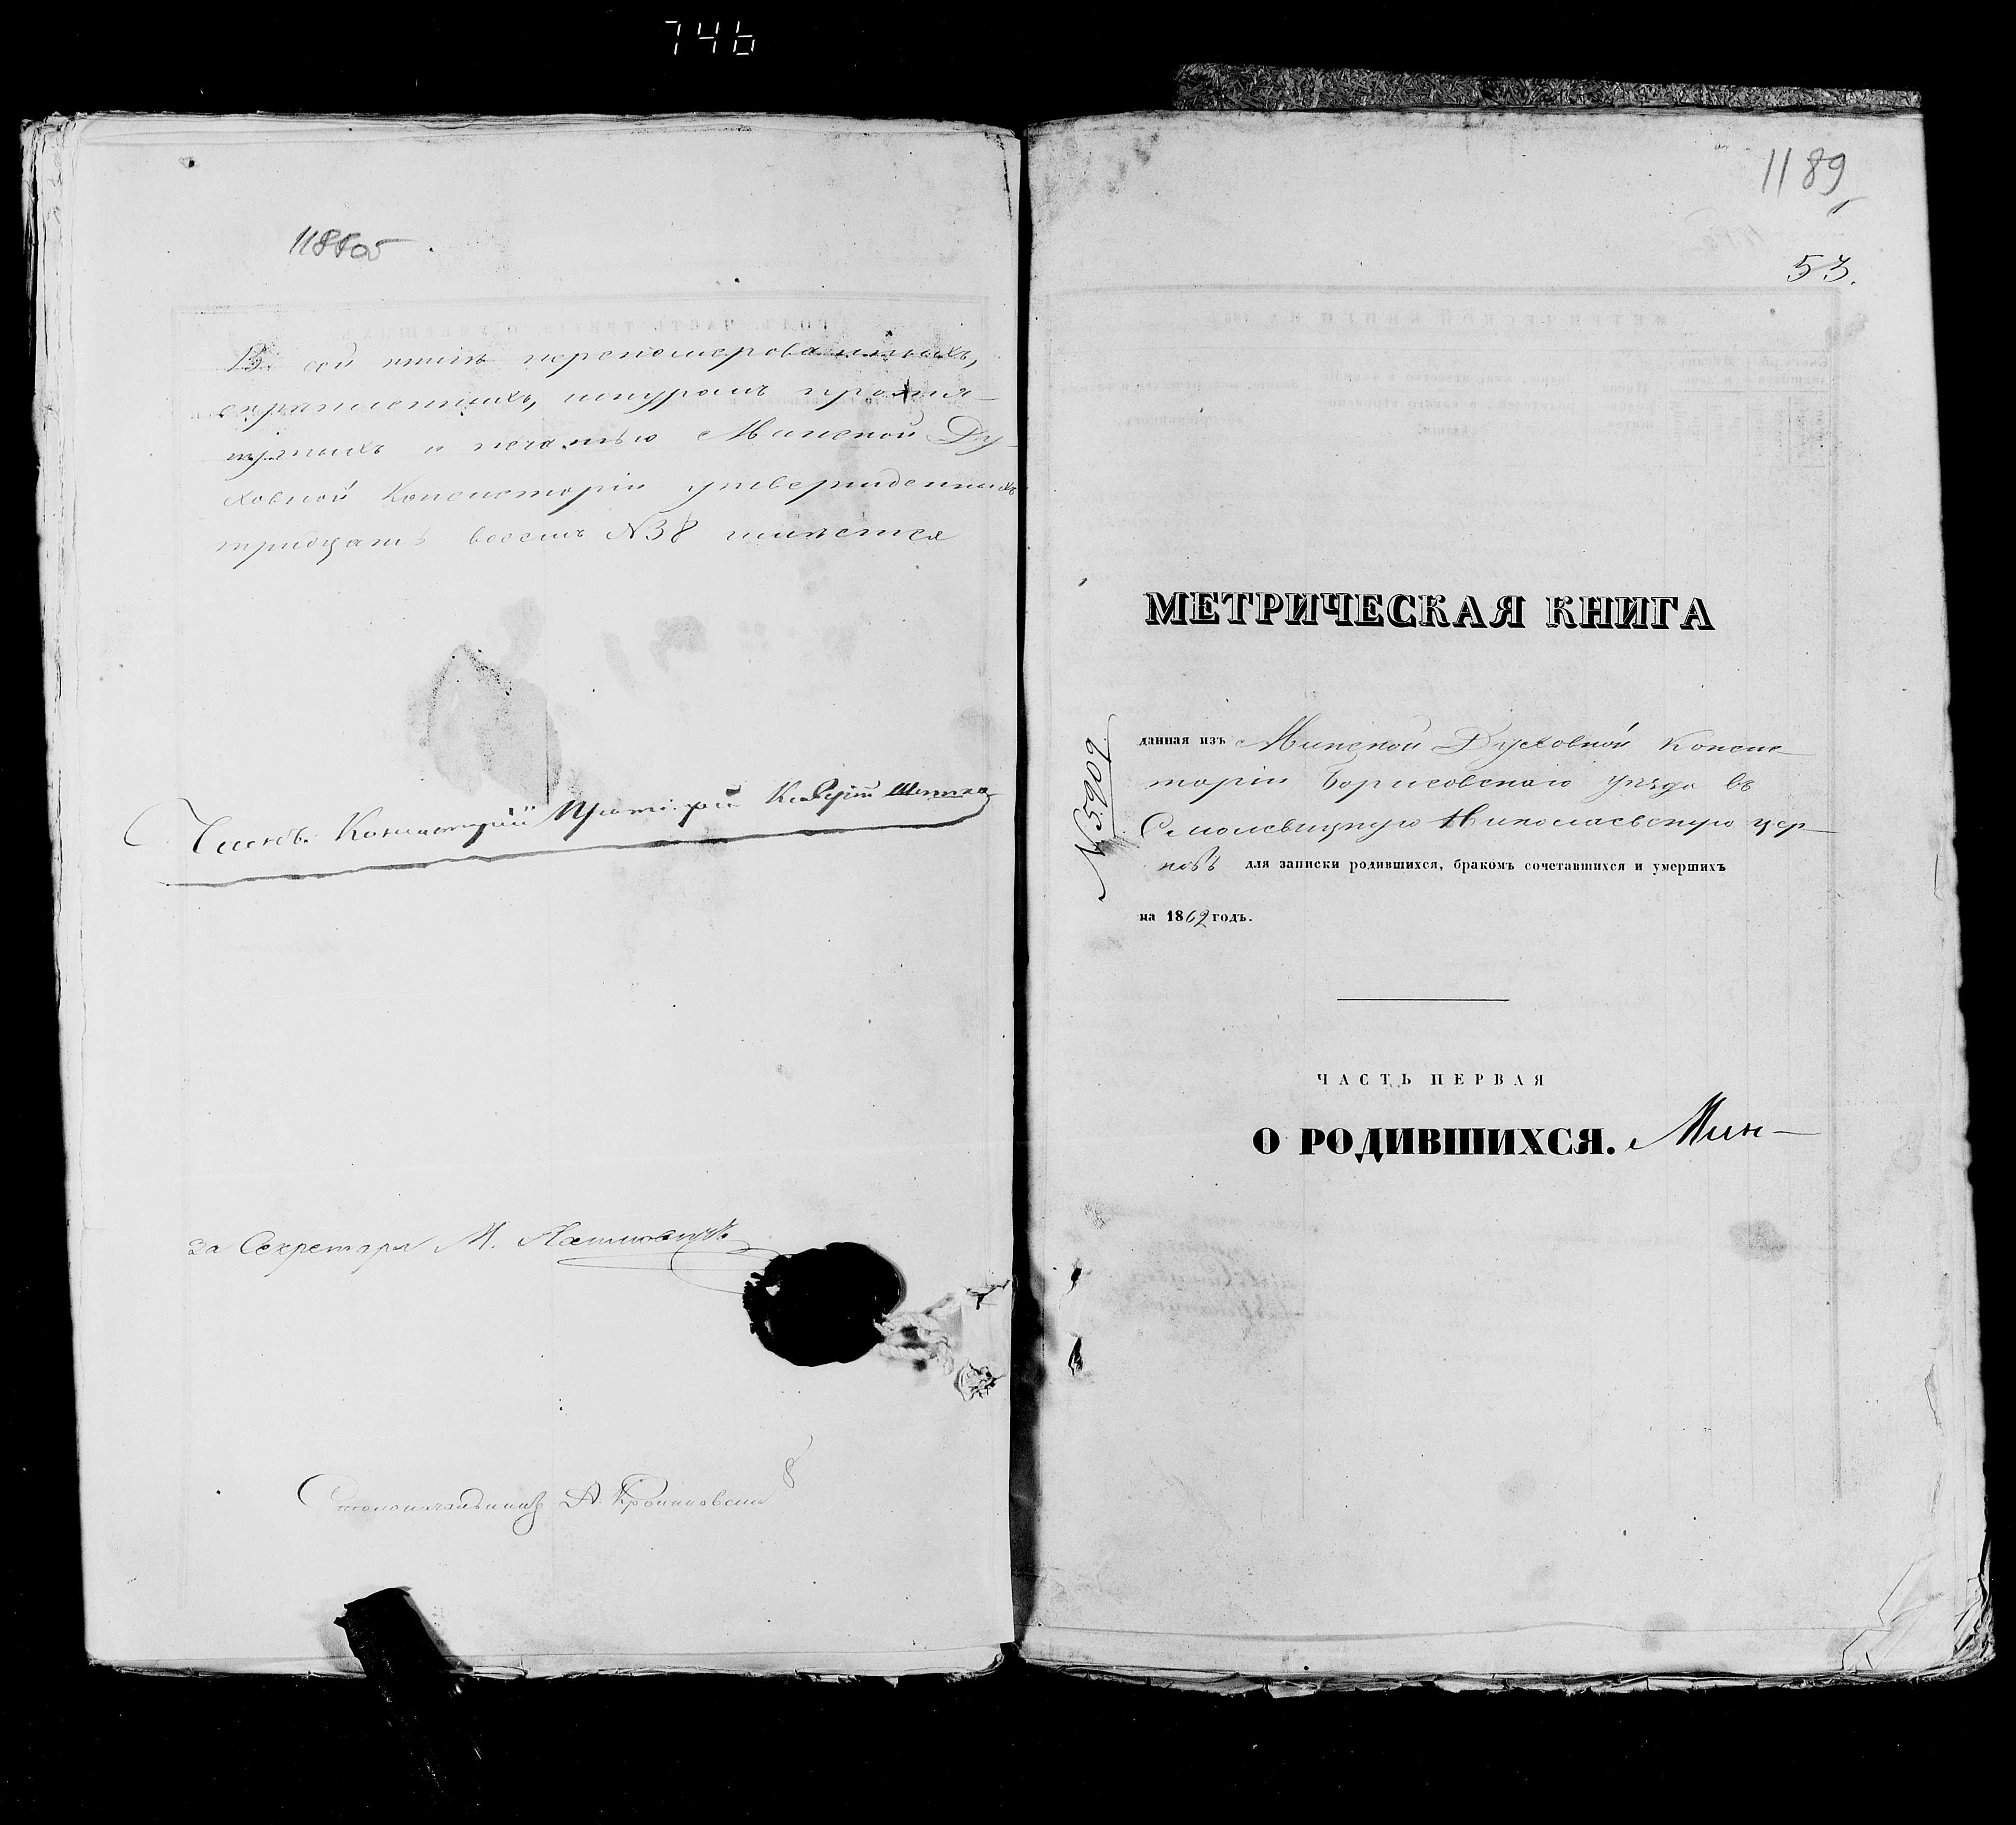 746
1188об
В сей книгѣ переномерованныхъ,
скрѣпленныхъ, шнуромъ прошну-
рныхъ и печатью Минской Ду-
ховной Консисторіи утвержденныхъ
тридцать восемь N 38 листовъ
Членъ Консисторіи Протоіерей
За Секретаря М.
Столоначальникъ А.
1189
53.
МЕТРИЧЕСКАЯ КНИГА
№ 5909
данная изъ Минской Духовной Консис
торіи Борисовскаго уѣзда въ
Смолевицкую Николаевскую цер-
ковь для записки родившихся, бракомъ сочетавшихся и умершихъ
на 1862 годъ.
ЧАСТЬ ПЕРВАЯ
О РОДИВШИХСЯ. Мин-